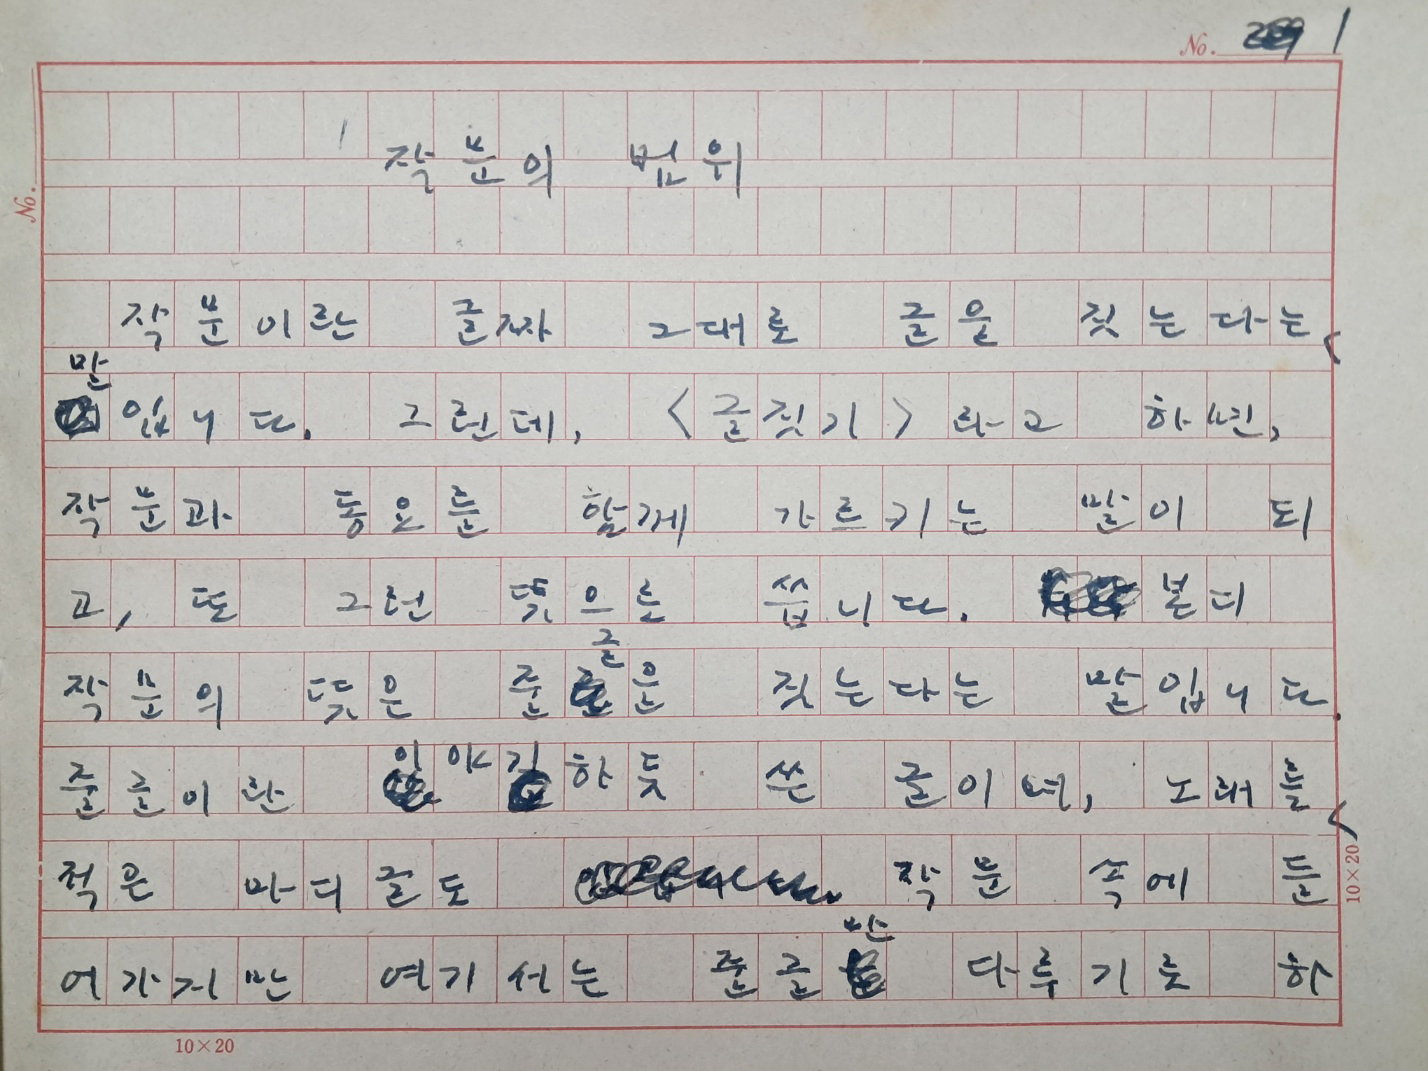 No. 1
작문의 범위
No.
작문이란 글짜 그대로 글을 짓는다는
말입니다. 그런데, 〈글짓기〉라고 하면,
작문과 동요를 함께 가르키는 말이 되
고, 또 그런 뜻으로 씁니다. 본디
작문의 뜻은 줄글을 짓는다는 말입니다.
줄글이란 이야기하듯 쓴 글이며, 노래를
적은 마디글도 작문 속에 들
어가지만 여기서는 줄글만 다루기로 하
10×20
10×20